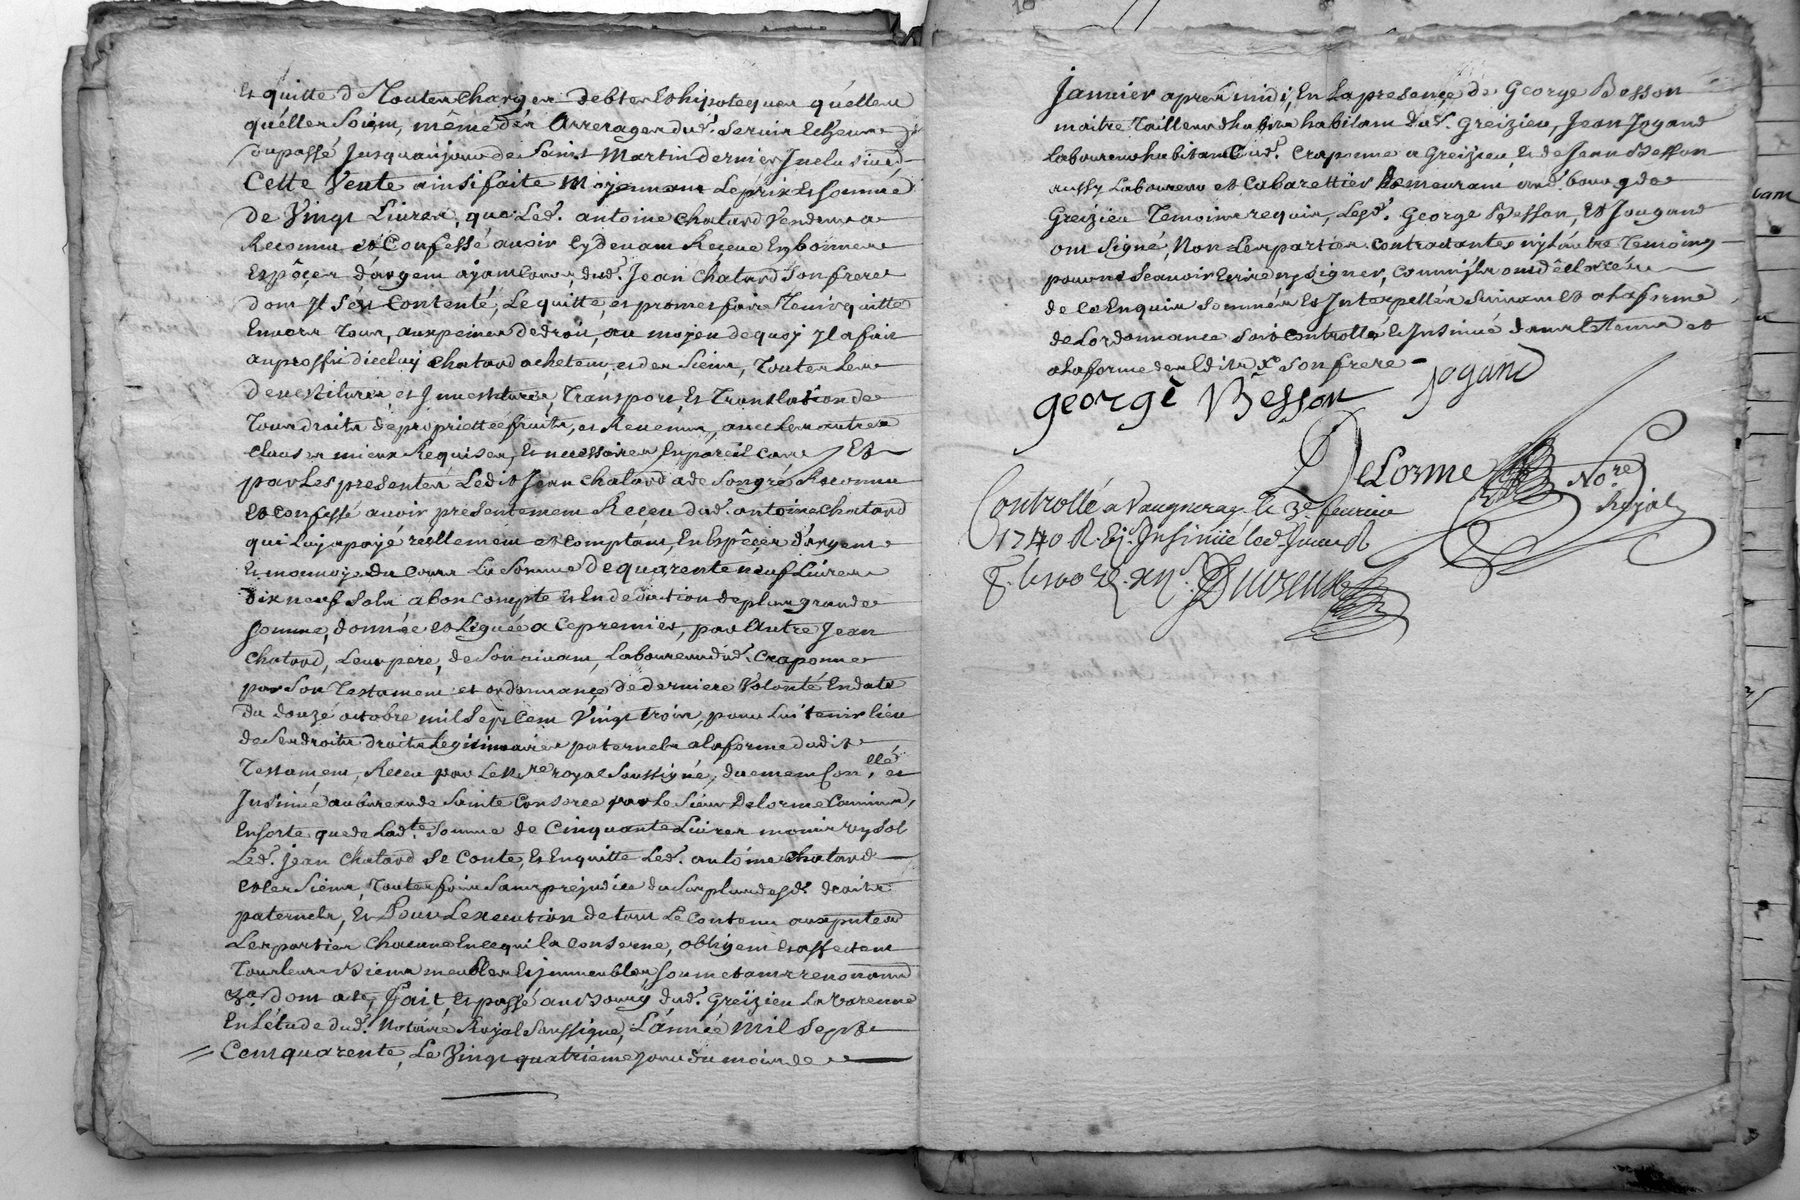 et quitte de Toutes charges debtes et hipoteques quelles
quelles soient, même des Arrerages dud. servis Echeus
du passé Jusquaujour de Saint Martin dernier Inclusived
Cette Vente ainsi faite Moyennant Le prix et somme
de Vingt Livres, que Led. antoine chatard vendeur a
Reconnu et Confessé avoir cy devant Reçeue En bonnes
Espêçes d'argent ayant cours, dud. Jean chatard son frere
dont Il s'est Contenté, Le quitte, et promet faire Tenir quitte
Envers Tous, aux peines de droit, au moyen de quoy Il a fait
au proffit dicelluy chatard acheteur, et des siens, Toutes Les
devestitures et Investitures, Transport et Translation de
Tous droits de propriettée fruits, et Revenus, avec Les autres
clauses mieux Requises, et necessaires En pareil cas Et
par Les presentes Ledit Jean chatard a de son gré Reconnu
et confessé avoir presentement Reçeu dud. antoine chatard
qui Luy a payé réellement et comptant, En Espêçes d'argent
et monnoye du cours La Somme de quarente neuf Livres
dix neuf sols a bon compte et En deduction de plus grande
somme, donnée et Leguée a ce premier, par Autre Jean
chatard, Leur pere, de son vivant, Laboureur dud. Craponne
par son Testament et ordonnance de derniere Volonté En date
du douze octobre mil Sept Cent Vingt trois, pour Lui tenir lieu
de Ses droits droits Legitimaires paternels a la forme dudit
Testament, Receu par Le Nre royal Soussigné, duement Conllé, et
Insinué au bureau de Sainte Consorce par Le Sieur Delorme Commis,
En sorte que de Ladte. Somme de Cinquante Livres moins un sol
Led. jean chatard se conte, et En quitte Led. antoine chatard
et les Siens Toutes fois Sans prejudice du Surplus desd. droits
paternels, Et Pour L'execution de tout Le contenu aux pntes
Les parties chacune En ce qui la conserne, obligent et affectent
Tous leurs Biens meubles et jmmeubles, soumettant renonant
&a. dont acte, fait et passé au Bourg dud. Greizieu La Varenne
En L'étude dud. Notaire Royal Soussigné, L'année Mil Sept
Cent quarente, Le Vingt quatrieme jour du mois de
Janvier apres midi, En La presençe de George Besson
maitre Tailleur d'habits habitant dud. Greizieu, Jean Jogand
Laboureur habitant dud. Craponne a Greizieu, et de Jean Besson
aussy Laboureur et Cabarettier Demeurant aud. bourg de
Greizieu Temoins requis, Lesd. George Besson, et Jougand
ont signé, Non Les parties contractantes ny l'autre Temoing
pour ne Sçavoir Ecrire ny signer, Comm'ils ont déclaré
de ce Enquis sommés et Interpellés Suivant et a la forme
de Lordonnance soit Controllé et Insinué dans le Tems et
a la forme des Edits X son frere
george Besson jogand
DeLorme Nore.
Royal
Controllé a Vaugneray le 3e fevrier
1740 R. Insinué led. Jour